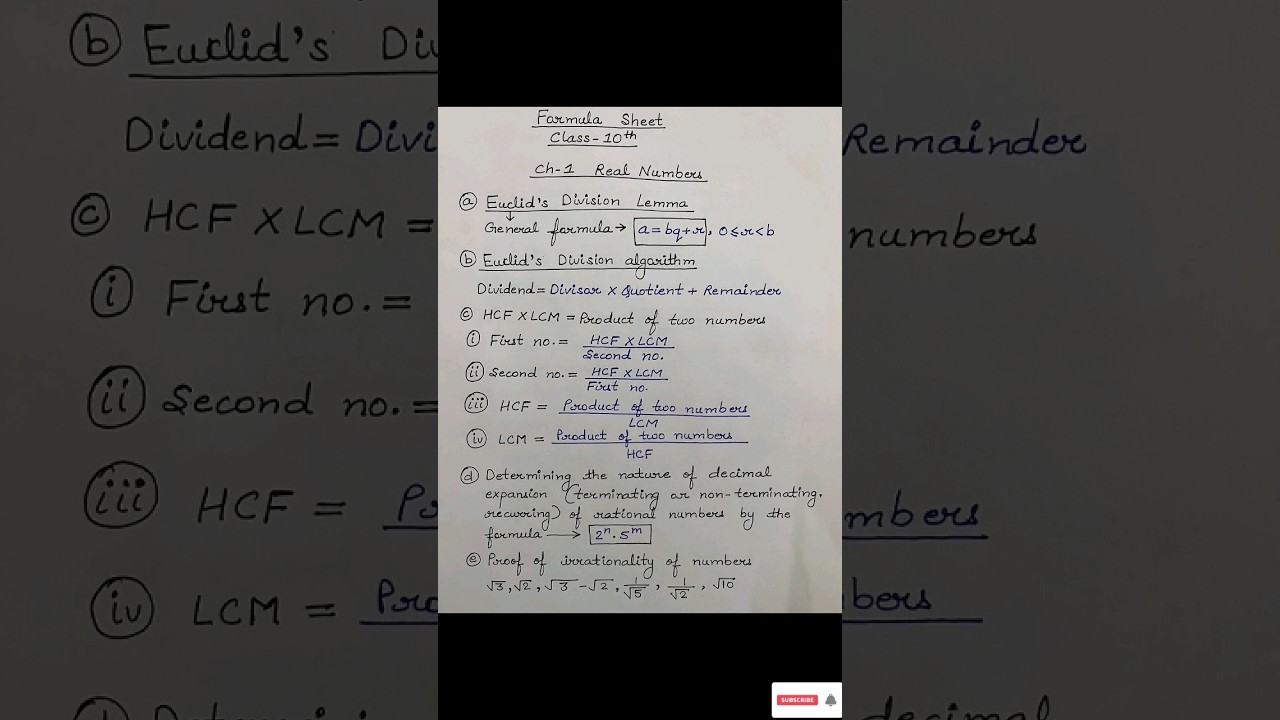 Formula Sheet
Class-10th
Ch-1 Real Numbers
(a) Euclid's Division Lemma
General formula → a = bq + r, 0 ≤ r < b
(b) Euclid's Division algorithm
Dividend = Divisor × Quotient + Remainder
(c) HCF × LCM = Product of two numbers
(i) First no. = HCF × LCM
Second no.
(ii) Second no. = HCF × LCM
First no.
(iii) HCF = Product of two numbers
LCM
(iv) LCM = Product of two numbers
HCF
(d) Determining the nature of decimal
expansion (terminating or non-terminating,
recurring) of rational numbers by the
formula → 2ⁿ · 5ᵐ
(e) Proof of irrationality of numbers
√3, √2, √3 - √2, 1/√5, 1/√2, √10
SUBSCRIBE
(b) Euclid's Div
Dividend = Divi
(c) HCF × LCM =
(i) First no. =
(ii) Second no. =
(iii) HCF = P
(iv) LCM = Pro
Remainder
numbers
mbers
bers
decimal